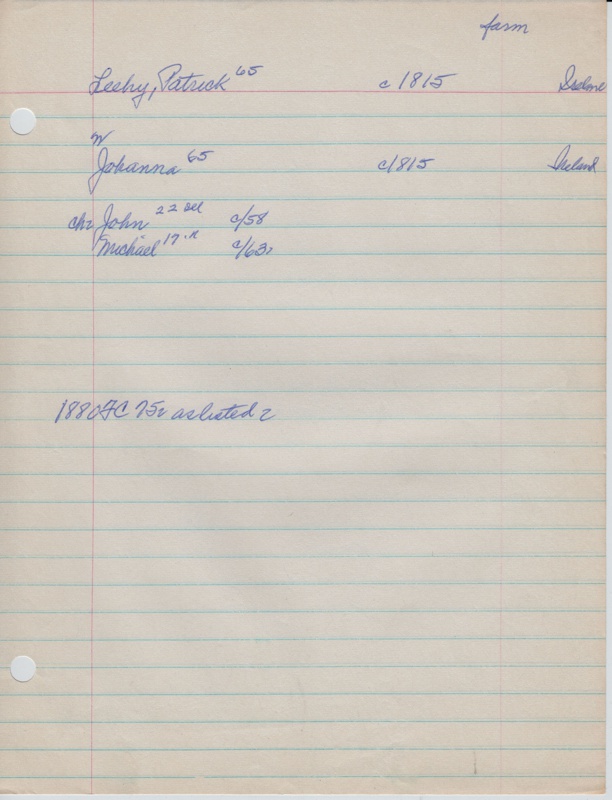 farm
Leehy, Patrick 65 c 1815
w
Johanna 65 c/1815 Ireland
chr John 22 c/58
Michael 17 c/63
1880 FC as listed